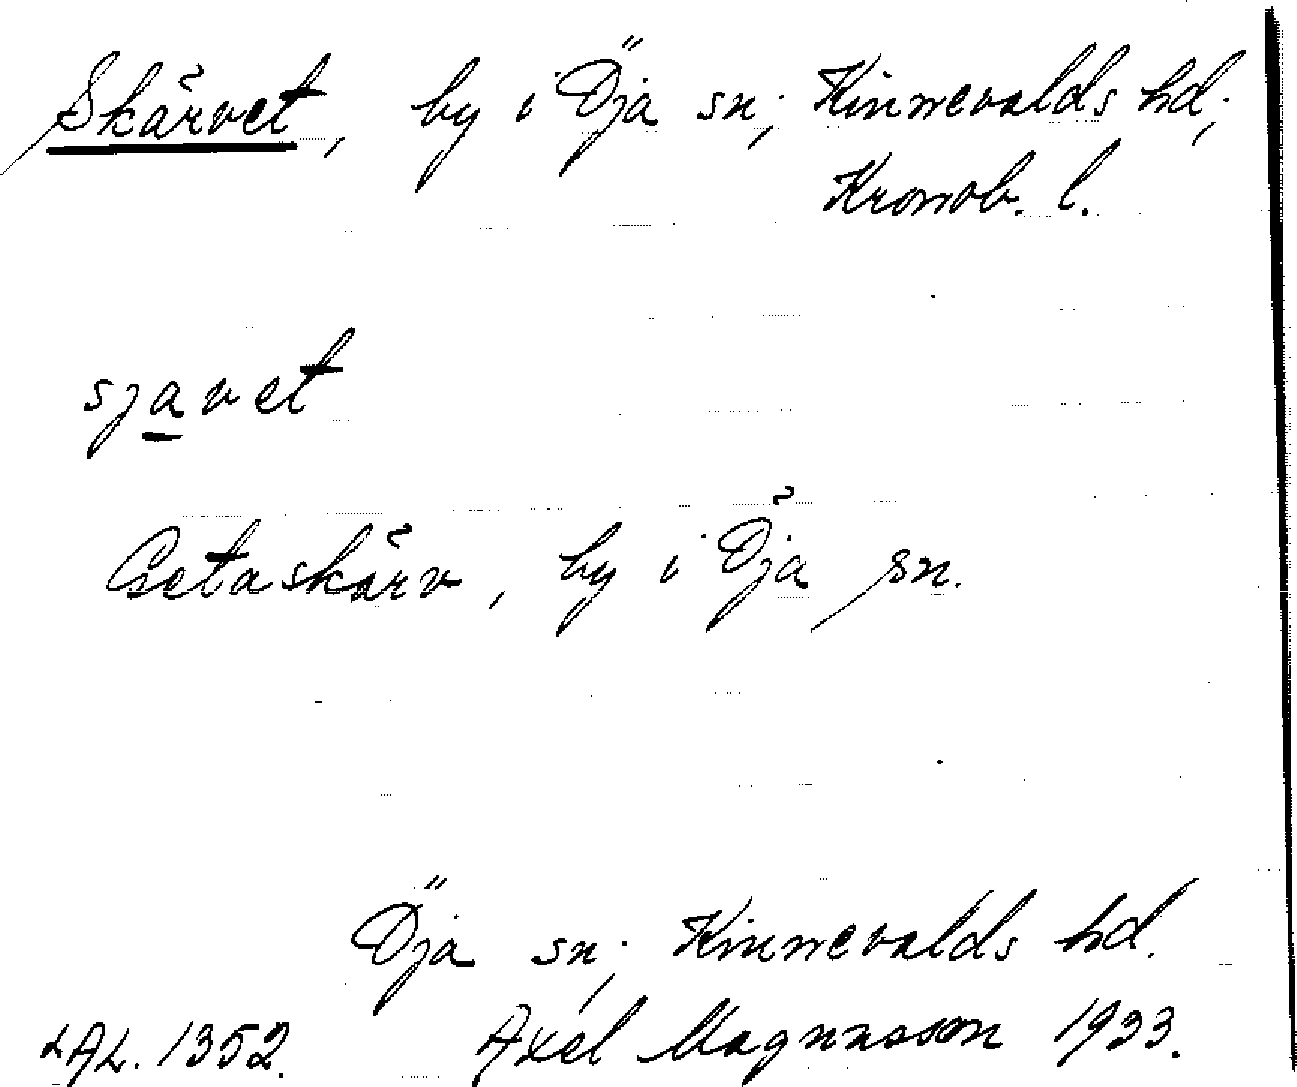 Skärvet, by i Öja sn; Kinnevalds hd;
Kronob. l.
sjavet
Getaskärv, by i Öja sn.
Öja sn; Kinnevalds hd.
LAL. 1352. Axel Magnusson 1933.